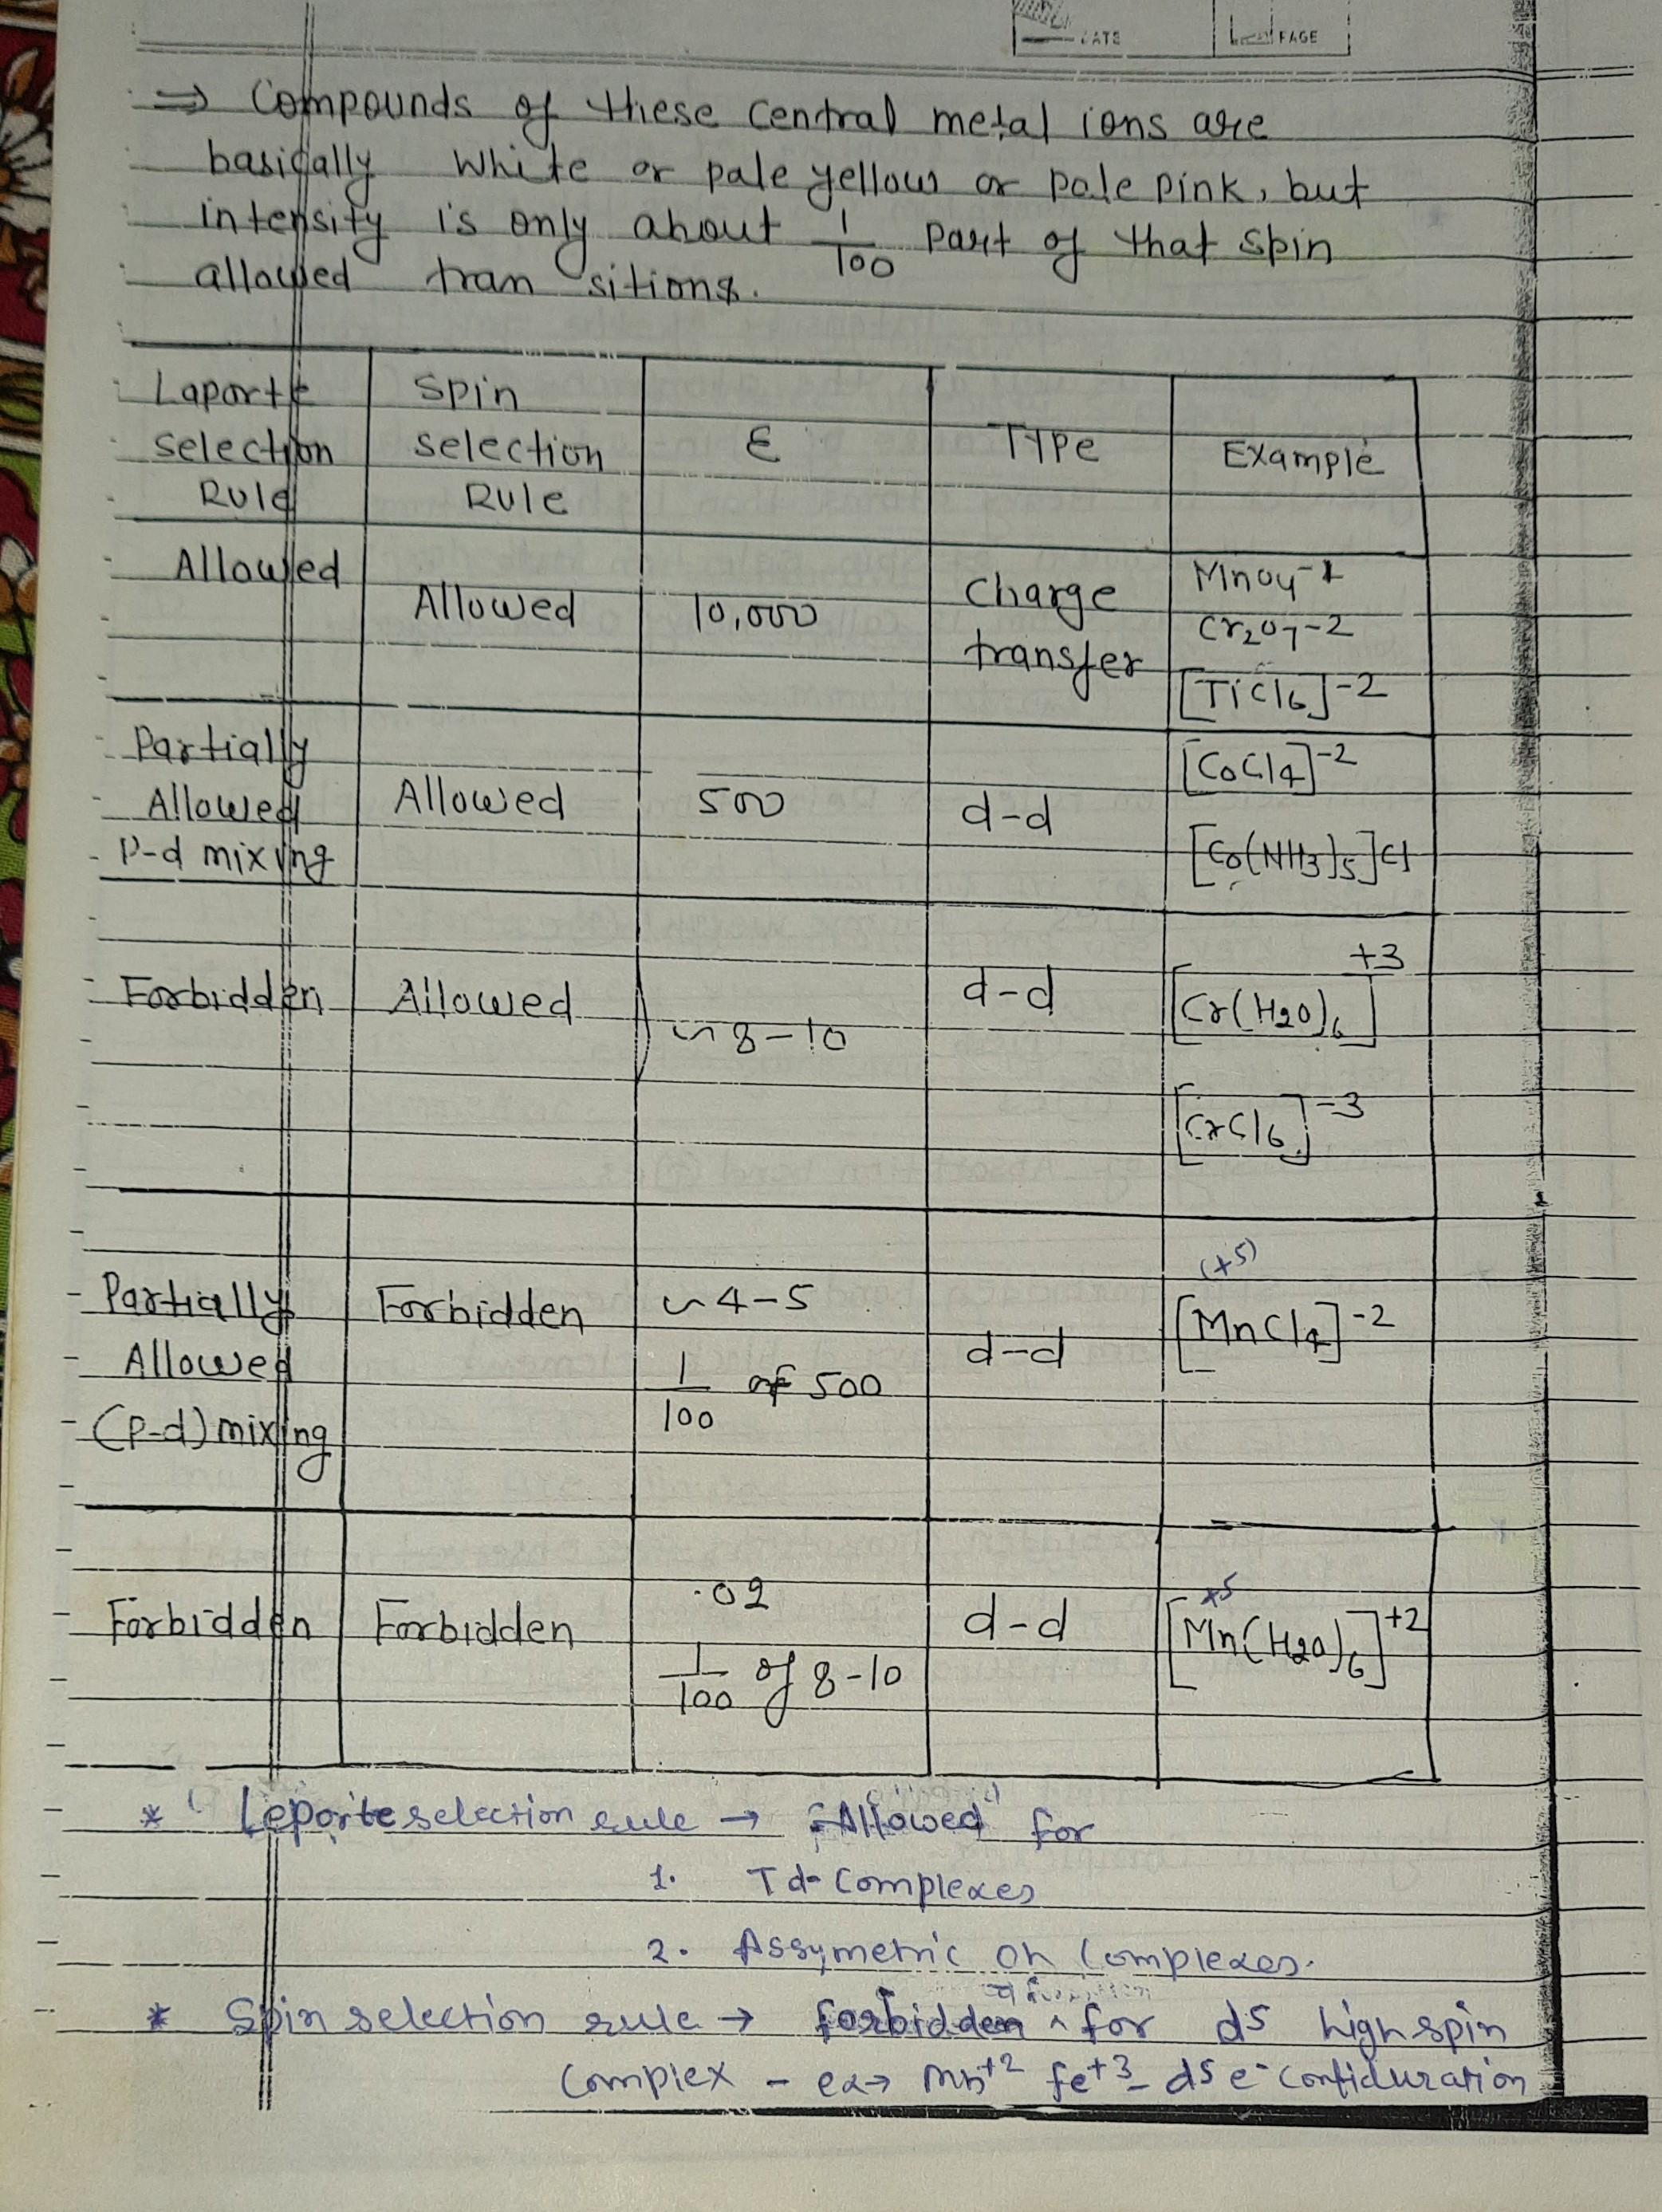 DATE PAGE
⇒ Compounds of these central metal ions are
basically white or pale yellow or pale pink, but
intensity is only about 1/100 part of that spin
allowed tran sitions.
Laporte selection Rule | Spin selection Rule | ε | TYPe | Example
Allowed | Allowed | 10,000 | Charge transfer | MnO4-1 Cr2O7-2 [TiCl6]-2
Partially Allowed P-d mixing | Allowed | 500 | d-d | [CoCl4]-2 [Co(NH3)5]Cl
Forbidden | Allowed | ~8-10 | d-d | [Cr(H2O)6]+3 [CrCl6]-3
Partially Allowed (P-d) mixing | Forbidden | ~4-5 1/100 of 500 | d-d | (+5) [MnCl4]-2
Forbidden | Forbidden | .02 1/100 of 8-10 | d-d | +5 [Mn(H2O)6]+2
* Leporte selection rule → Allowed for
1. Td- Complexes
2. Assymetric Oh Complexes.
* Spin selection rule → forbidden ^ for d5 high spin
Complex - ex→ Mn+2 fe+3- d5 e- Confiduration